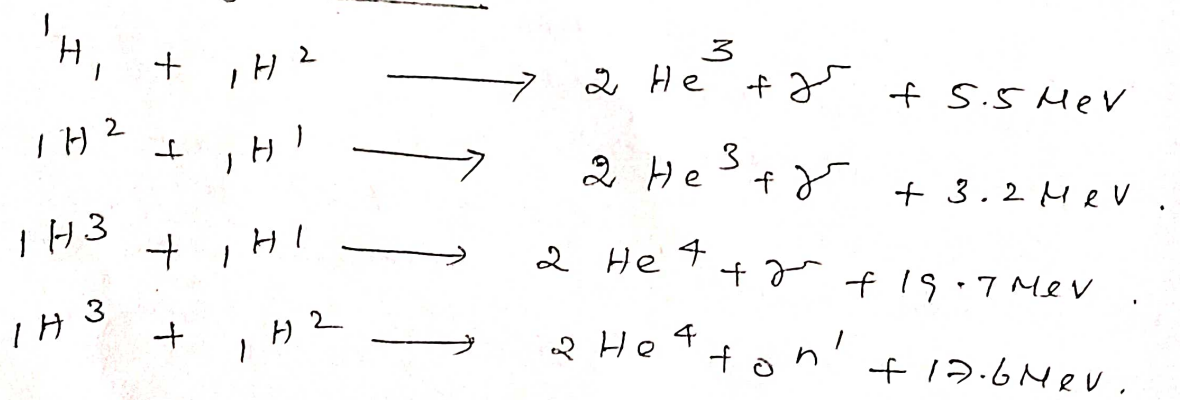 ¹H₁ + ₁H² ⟶ ₂He³ + γ + 5.5 MeV
₁H² + ₁H¹ ⟶ ₂He³ + γ + 3.2 MeV.
₁H³ + ₁H¹ ⟶ ₂He⁴ + γ + 19.7 MeV.
₁H³ + ₁H² ⟶ ₂He⁴ + ₀n¹ + 17.6 MeV.